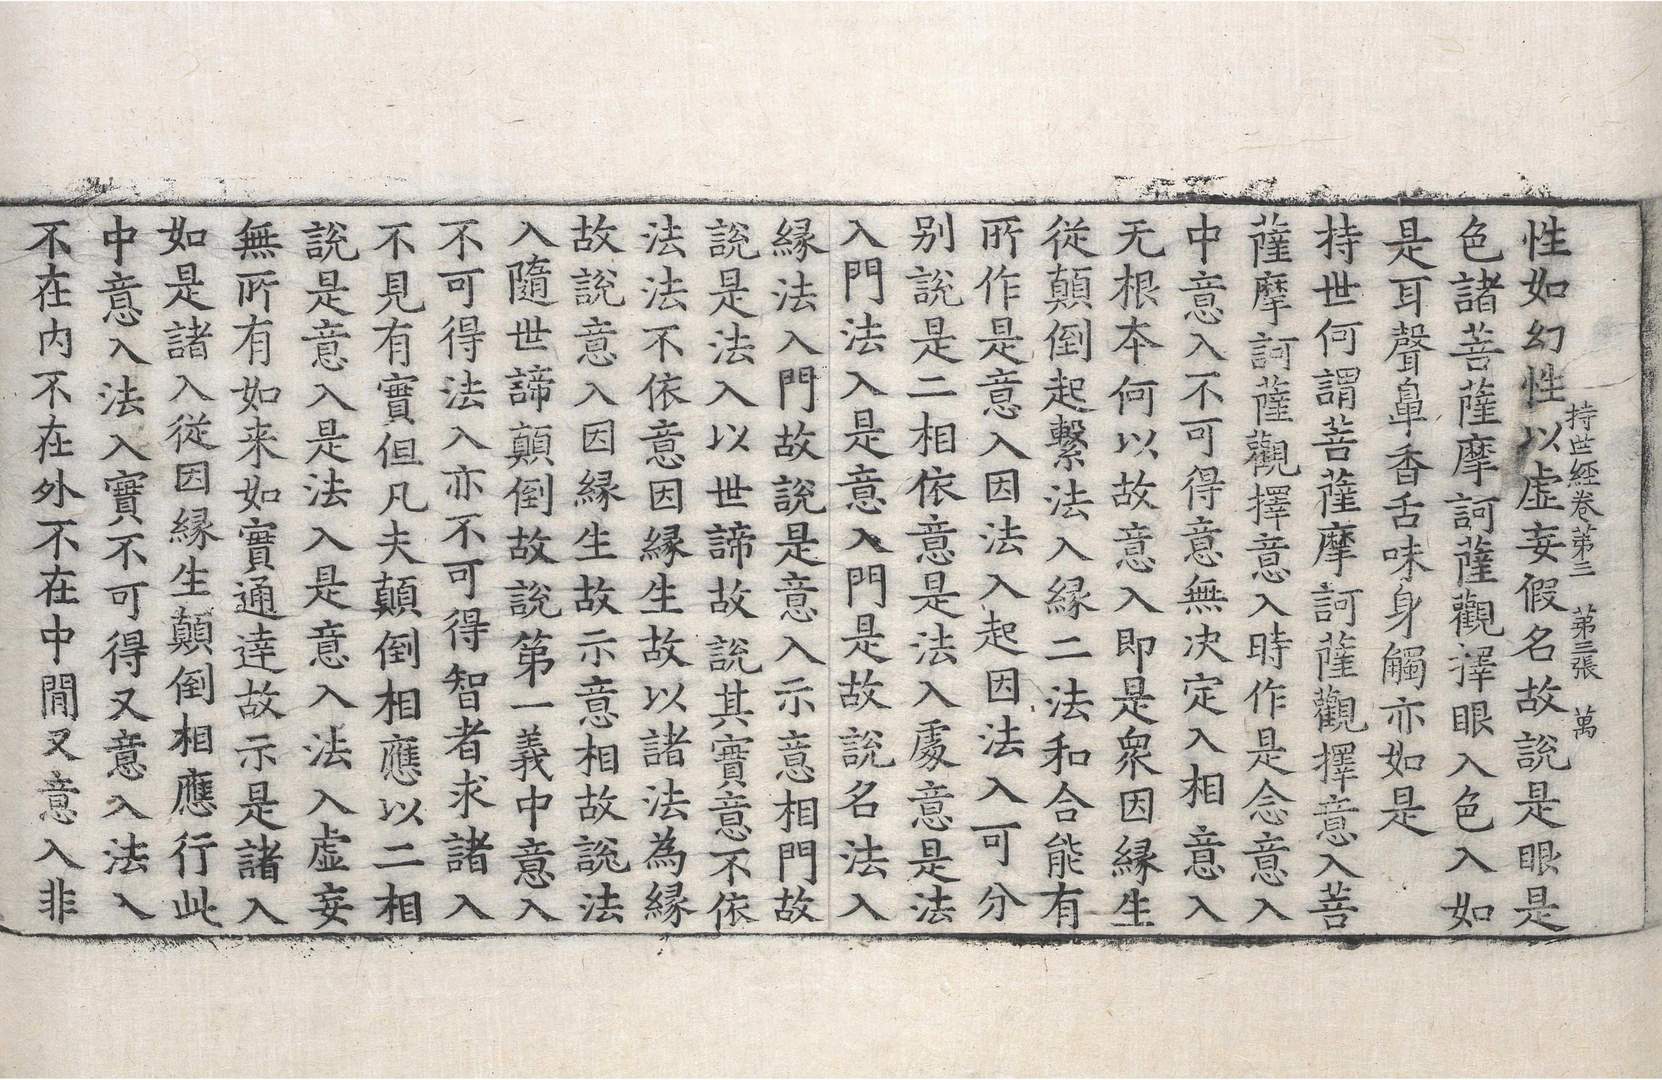 持世經卷第二　第三張　萬
性如幻性以虛妄假名故說是眼是
色諸菩薩摩訶薩觀擇眼入色入如
是耳聲鼻香舌味身觸亦如是
持世何謂菩薩摩訶薩觀擇意入菩
薩摩訶薩觀擇意入時作是念意入
中意入不可得意無决定入相意入
无根本何以故意入即是衆因緣生
從顛倒起繫法入緣二法和合能有
所作是意入因法入起因法入可分
别說是二相依意是法入處意是法
入門法入是意入門是故說名法入
緣法入門故說是意入示意相門故
說是法入以世諦故說其實意不依
法法不依意因緣生故以諸法為緣
故說意入因緣生故示意相故說法
入隨世諦顛倒故說第一義中意入
不可得法入亦不可得智者求諸入
不見有實但凡夫顛倒相應以二相
說是意入是法入是意入法入虛妄
無所有如来如實通達故示是諸入
如是諸入從因緣生顛倒相應行此
中意入法入實不可得又意入法入
不在内不在外不在中間又意入非